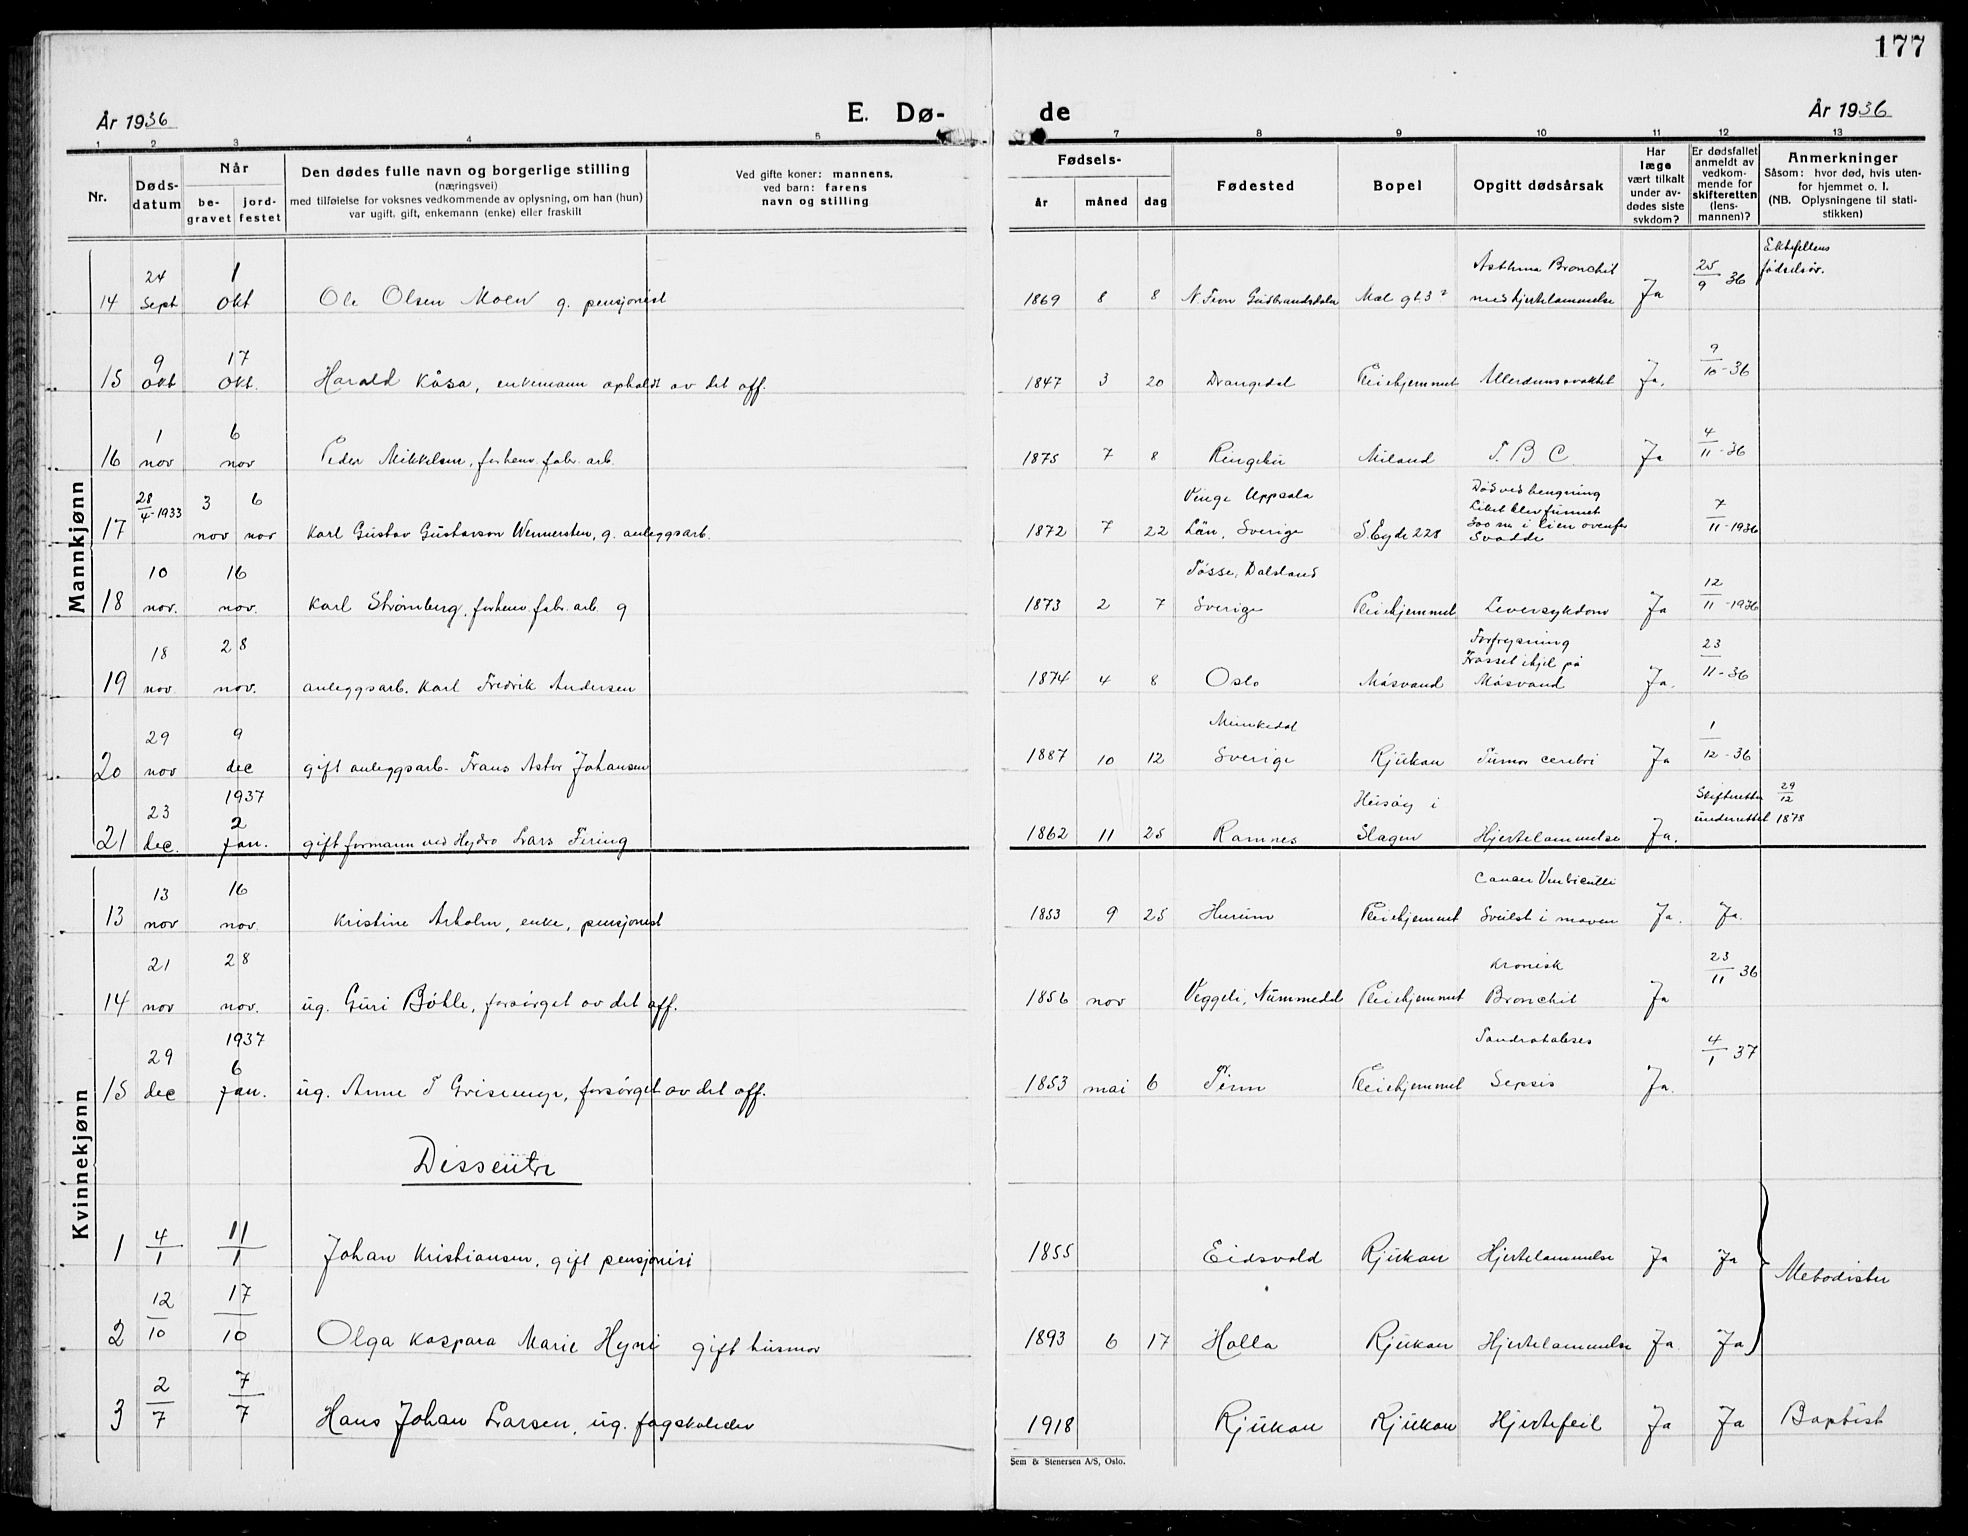 177
År 1936 E. Dø- de År 1936
1 2 3 4 5 7 8 9 10 11 12 13
Nr.
Døds-
datum
Når
be-
gravet
jord-
festet
Den dødes fulle navn og borgerlige stilling
(næringsvei)
med tilføielse for voksnes vedkommende av oplysning, om han (hun)
var ugift, gift, enkemann (enke) eller fraskilt
Ved gifte koner: mannens,
ved barn: farens
navn og stilling
Fødsels-
år måned dag
Fødested
Bopel
Opgitt dødsårsak
Har
læge
vært tilkalt
under av-
dødes siste
sykdom?
Er dødsfallet
anmeldt av
vedkom-
mende for
skifteretten
(lens-
mannen)?
Anmerkninger
Såsom: hvor død, hvis uten-
for hjemmet o. l.
(NB. Oplysningene til stati-
stikken)
Mannkjønn
Ektefellens
fødselsår.
24 1 Asthma Bronchit 25
14 Sept okt Ole Olsen Moen g. pensjonist 1869 8 8 N. Fron Gudbrandsdalen Mæl gt. 3 med hjertelammelse Ja 9 36
9 17 9
15 okt okt. Harald Kåsa, enkemann opholdt av det off. 1847 3 20 Drangedal Pleiehjemmet Alderdomssvakhet Ja. 10-36
1 6 4
16 nov nov Peder Mikkelsen, forhenv. fabr. arb. 1875 7 8 Ringebu Miland T. B C. Ja 11-36
28 3 6 Vinge Uppsala Død ved hengning 7
4-1933 Liket blev funnet
300 m i lien ovenfor
17 nov nov Karl Gustav Gustavson Wennersten, g. anleggsarb. 1872 7 22 Län, Sverige S. Eyde 228 Svadde 11-1936
10 16 Tösse, Dalsland 12
18 nov. nov. Karl Strømberg, forhenv. fabr. arb. g 1873 2 7 Sverige Pleiehjemmet Leversykdom Ja 11-1936
18 28 Forfrysning 23
Frosset ihjel på
19 nov nov. anleggsarb. Karl Fredrik Andersen 1874 4 8 Oslo Møsvand Møsvand Ja. 11-36
29 9 Munkedal 1
20 nov dec gift anleggsarb. Frans Astor Johansen 1887 10 12 Sverige Rjukan Tumor cerebri Ja 12-36
23 1937 2 Husøy i Skifteretten 29/12
21 dec. jan. gift formann ved Hydro Lars Firing 1862 11 25 Ramnes Slagen Hjertelammelse Ja. underrettet 1878
Kvinnekjønn
13 16 Cancer Ventriculi
13 nov nov. Kristine Arholm, enke, pensjonist 1853 9 25 Hurum Pleiehjemmet Svulst i maven Ja. Ja.
21 28 Kronisk 23
14 nov nov. ug. Guri Bøhle, forsørget av det off. 1856 nov Veggeli, Nummedal Pleiehjemmet Bronchit Ja 11 36
29 1937 6 4
15 dec jan. ug. Anne T Grisemyr, forsørget av det off. 1853 mai 6 Tinn Pleiehjemmet Sepsis Ja. 1 37
Dissentre
1 4/1 11/1 Johan Kristiansen, gift pensjonist 1855 Eidsvold Rjukan Hjertelammelse Ja Ja
Metodister
2 12/10 17/10 Olga Kaspara Marie Hyni gift husmor 1893 6 17 Holla Rjukan Hjertelammelse Ja. Ja
3 2/7 7/7 Hans Johan Larsen, ug. fagskoleelev 1918 Rjukan Rjukan Hjertefeil Ja Ja Baptist
Sem & Stenersen A/S, Oslo.